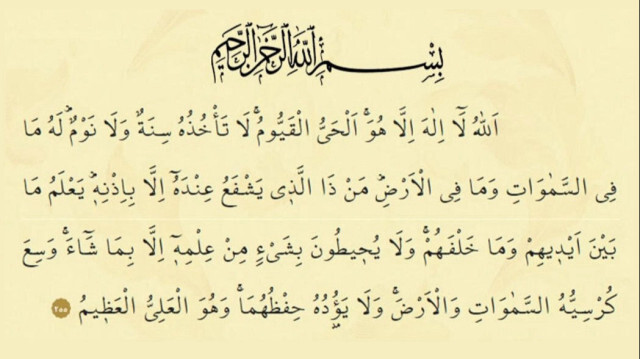 بِسْمِ اللّٰهِ الرَّحْمٰنِ الرَّحِيمِ
اَللّٰهُ لَٓا اِلٰهَ اِلَّا هُوَۚ اَلْحَيُّ الْقَيُّومُۚ لَا تَأْخُذُهُ سِنَةٌ وَلَا نَوْمٌۜ لَهُ مَا
فِي السَّمٰوَاتِ وَمَا فِي الْاَرْضِۜ مَنْ ذَا الَّذ۪ي يَشْفَعُ عِنْدَهُٓ اِلَّا بِاِذْنِه۪ۜ يَعْلَمُ مَا
بَيْنَ اَيْد۪يهِمْ وَمَا خَلْفَهُمْۚ وَلَا يُح۪يطُونَ بِشَيْءٍ مِنْ عِلْمِه۪ٓ اِلَّا بِمَا شَٓاءَۚ وَسِعَ
كُرْسِيُّهُ السَّمٰوَاتِ وَالْاَرْضَۚ وَلَا يَؤُ۫دُهُ حِفْظُهُمَاۚ وَهُوَ الْعَلِيُّ الْعَظ۪يمُ ٢٥٥